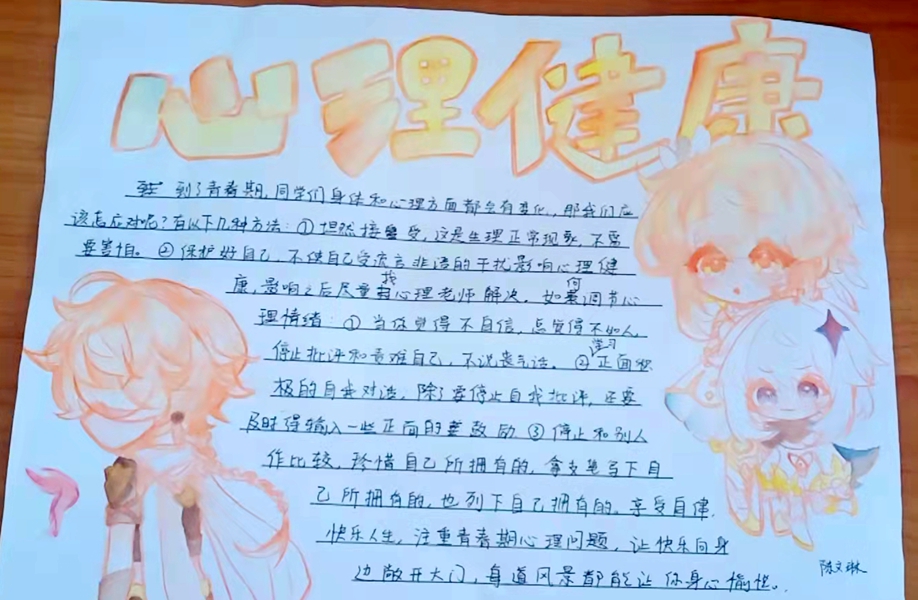 心理健康
到了青春期,同学们身体和心理方面都会有变化,那我们应
该怎应对呢?有以下几种方法:①坦然接受,这是生理正常现象,不需
要害怕。②保护好自己,不使自己受流言非语的干扰影响心理健
康,影响之后尽量找心理老师解决。如何调节心
理情绪:①当你觉得不自信,总觉得不如人
停止批评和责难自己,不说丧气话。②学习正面积
极的自我对话,除了要停止自我批评,还要
及时得输入一些正面的鼓励③停止和别人
作比较,珍惜自己所拥有的,拿支笔写下自
己所拥有的,也列下自己拥有的。享受自律,
快乐人生,注重青春期心理问题,让快乐向身
边敞开大门,每道风景都能让你身心愉悦。
陈文琳